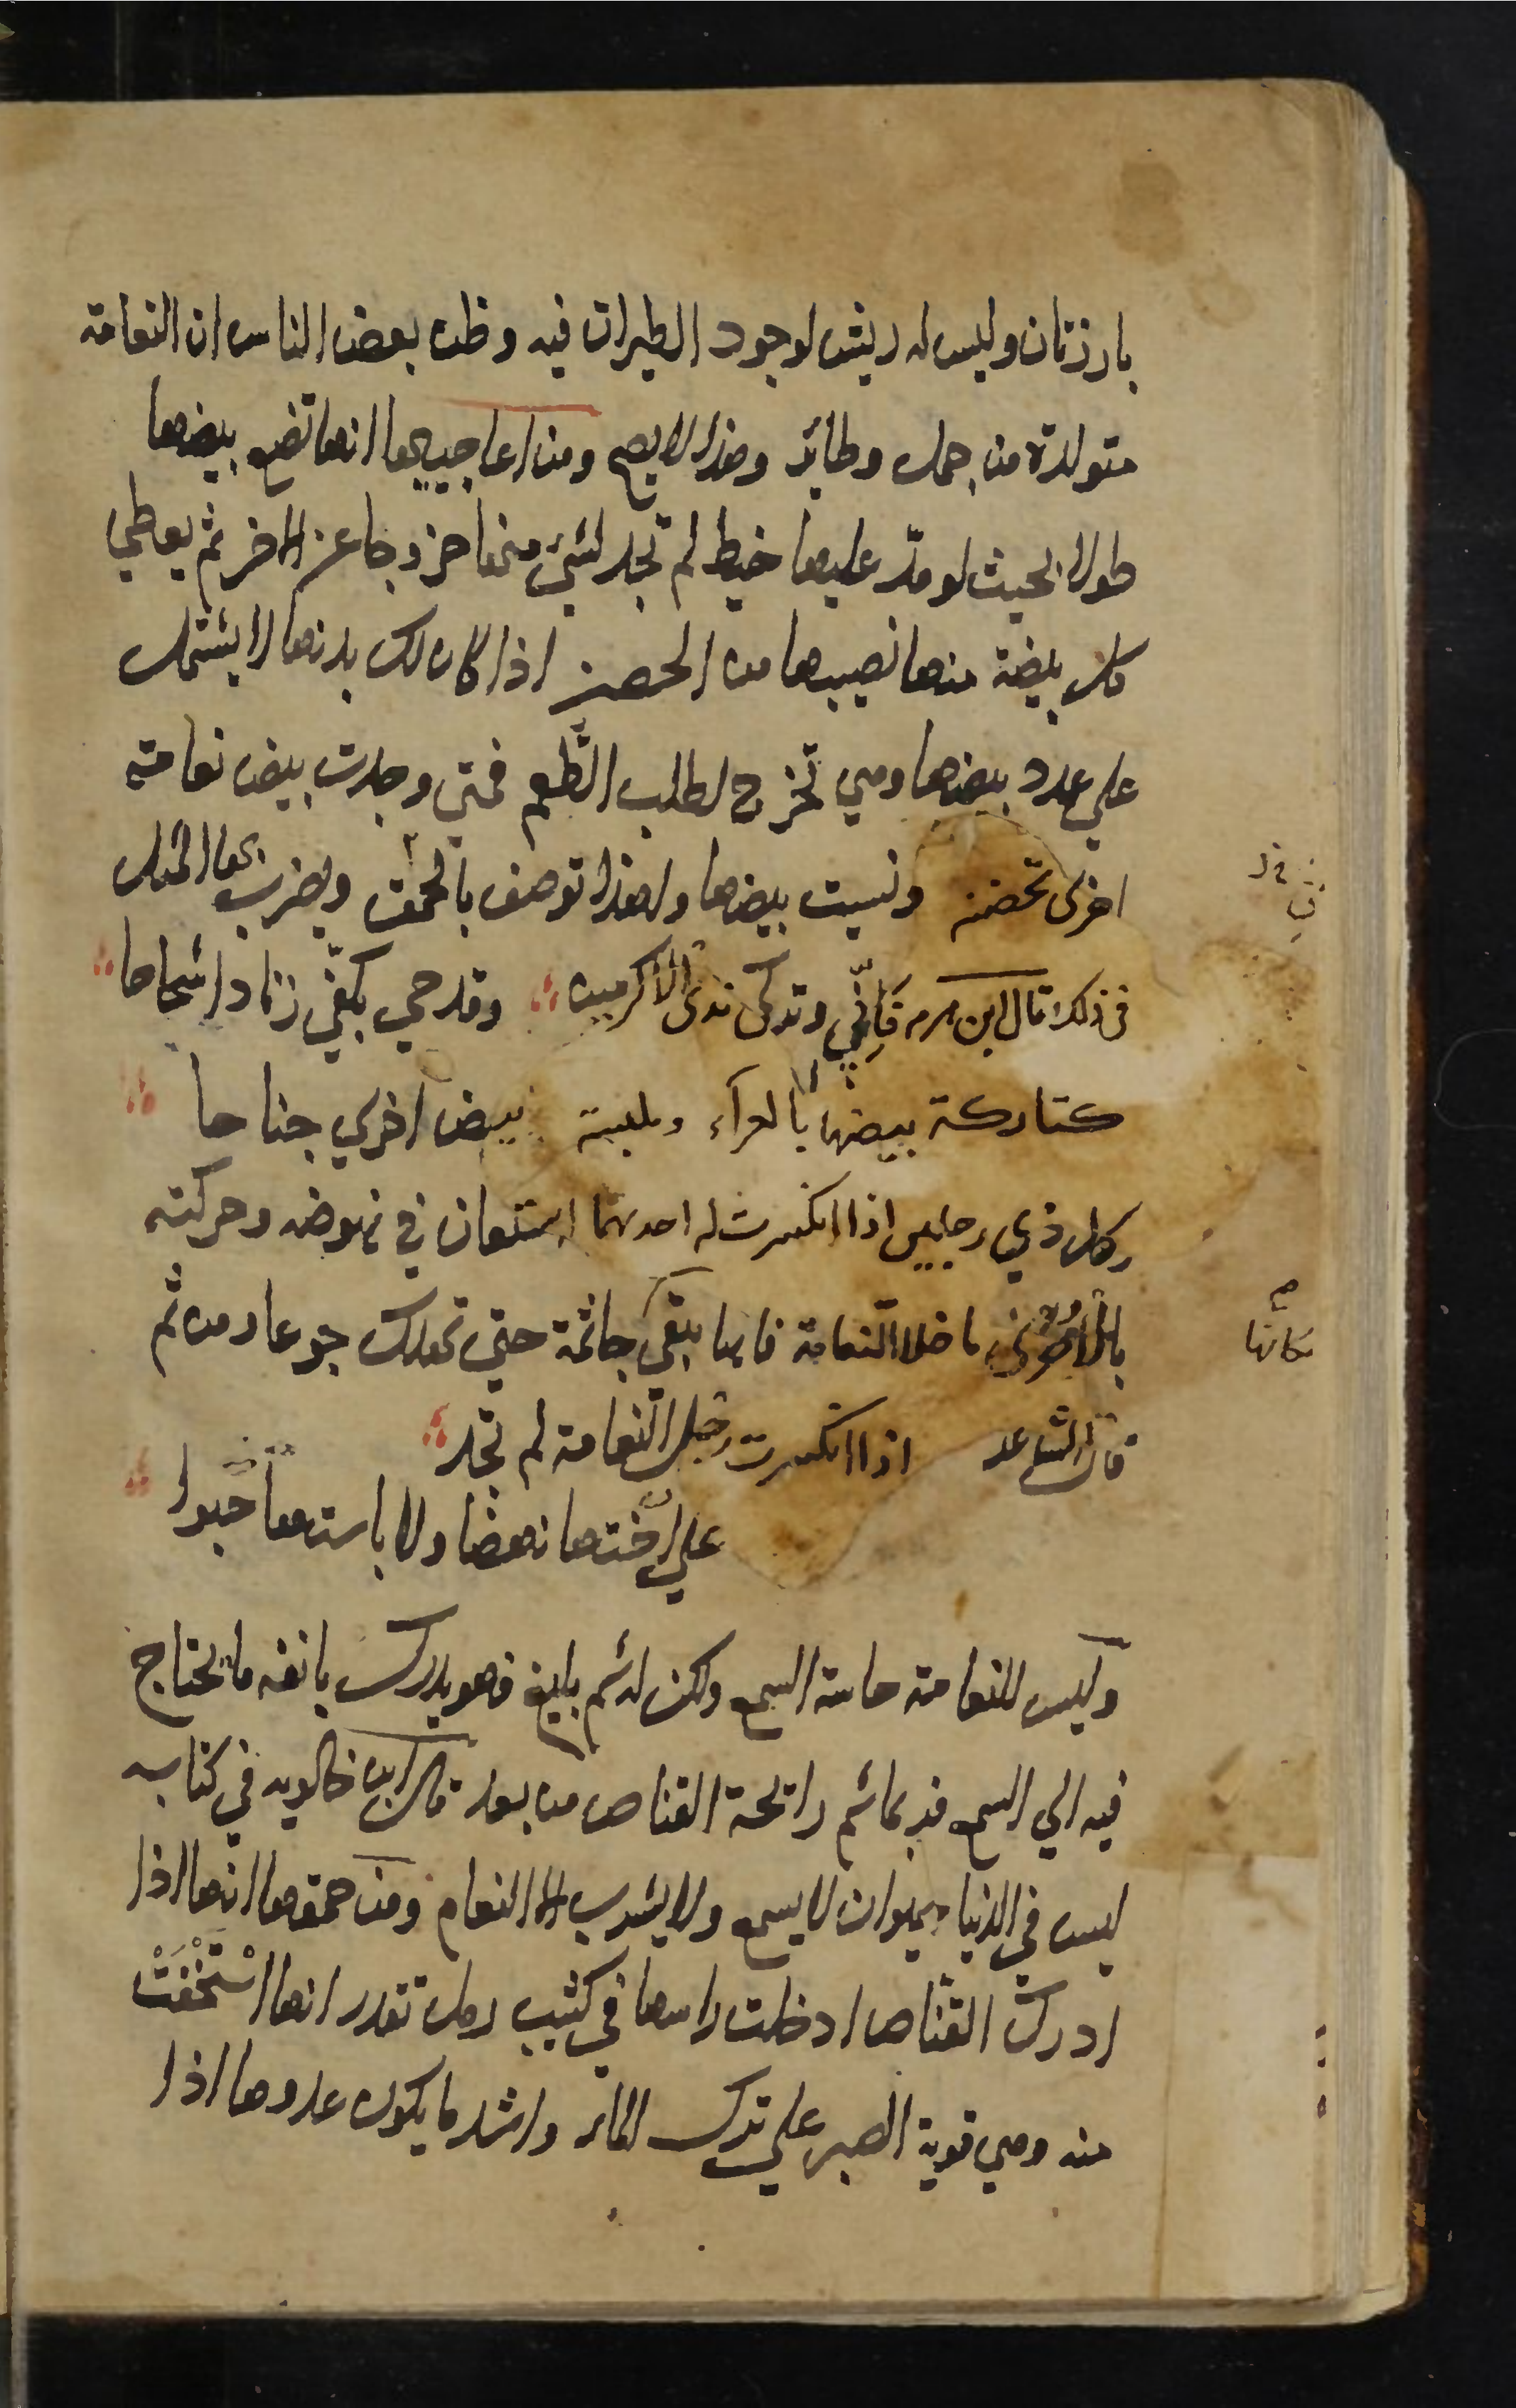 بارزتان وليس له ريش لوجود الطيران فيه وظن بعض الناس ان النعامة
متولدة من جمل وطائر وهذا لا يصح ومن اعاجيبها انها تضع بيضها
طولا بحيث لو مدّ عليها خيط لم تجد لشيء منها خروجا عن الاخر ثم يعطي
كل بيضة منها نصيبها من الحضن اذا كان لك بدنها لا يشتمل
علي عدد بيضها وهي تخرج لطلب الطُعم فمتي وجدت بيض نعامة
اخرى تحضنه ونسيت بيضها ولهذا توصف بالحُمق ويضرب بها المثل
في ذلك قال ابن هرمه فَاِنّي وتركي ندى الاكرمين وقدحي بكفّي زنادا شحاحا
كتاركة بيضها بالعرآء وملبسة بيض اخري جناحا
وكل ذي رجلين اذا انكسرت له احديهما استعان في نهوضه وحركته
بالاخرى ما خلا النّعامة فانها تبقى جاثمة حتي تهلك جوعا ومن ثم
مكانها
قال الشاعر اذا انكسرت رجل النّعامة لم تجد
علي اُختها نهضا ولا باستها حَبوا
وليس للنعامة حاسة السمع ولكن له شم بليغ فهو يدرك بانفه ما يحتاج
فيه الي السمع فربما شم رائحة القناص من بعد قال ابن خالويه في كتاب
ليس في الدنيا حيوان لا يسمع ولا يشرب الا النعام ومن حمقها انها اذا
ادركت القنّاص ادخلت راسها في كثيب رمل تقدر انها اسْتَخْفَتْ
منه وهي قوية الصبر علي ترك الماء واشد ما يكون عدوها اذا